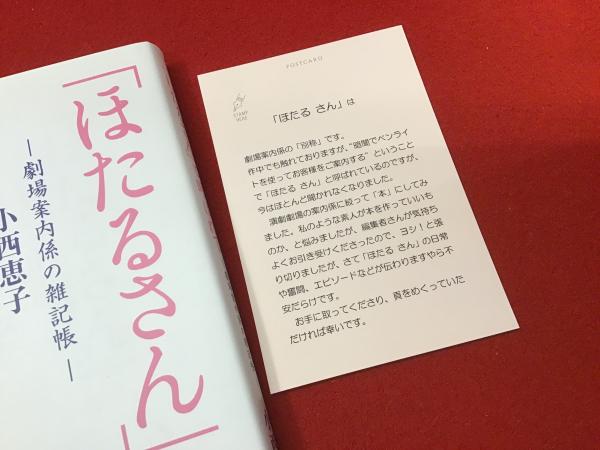 「ほたるさん」
―劇場案内係の雑記帳―
小西恵子
POSTCARD
STAMP
HERE
「ほたる さん」は
劇場案内係の「別称」です。
作中でも触れておりますが、“暗闇でペンライ
トを使ってお客様をご案内する”ということ
で「ほたる さん」と呼ばれているのですが、
今はほとんど聞かれなくなりました。
演劇劇場の案内係に絞って「本」にしてみ
ました。私のような素人が本を作っていいも
のか、と悩みましたが、編集者さんが気持ち
よくお引き受けくださったので、ヨシ！と張
り切りましたが、さて「ほたる さん」の日常
や奮闘、エピソードなどが伝わりますやら不
安だらけです。
お手に取ってくださり、頁をめくっていた
だければ幸いです。